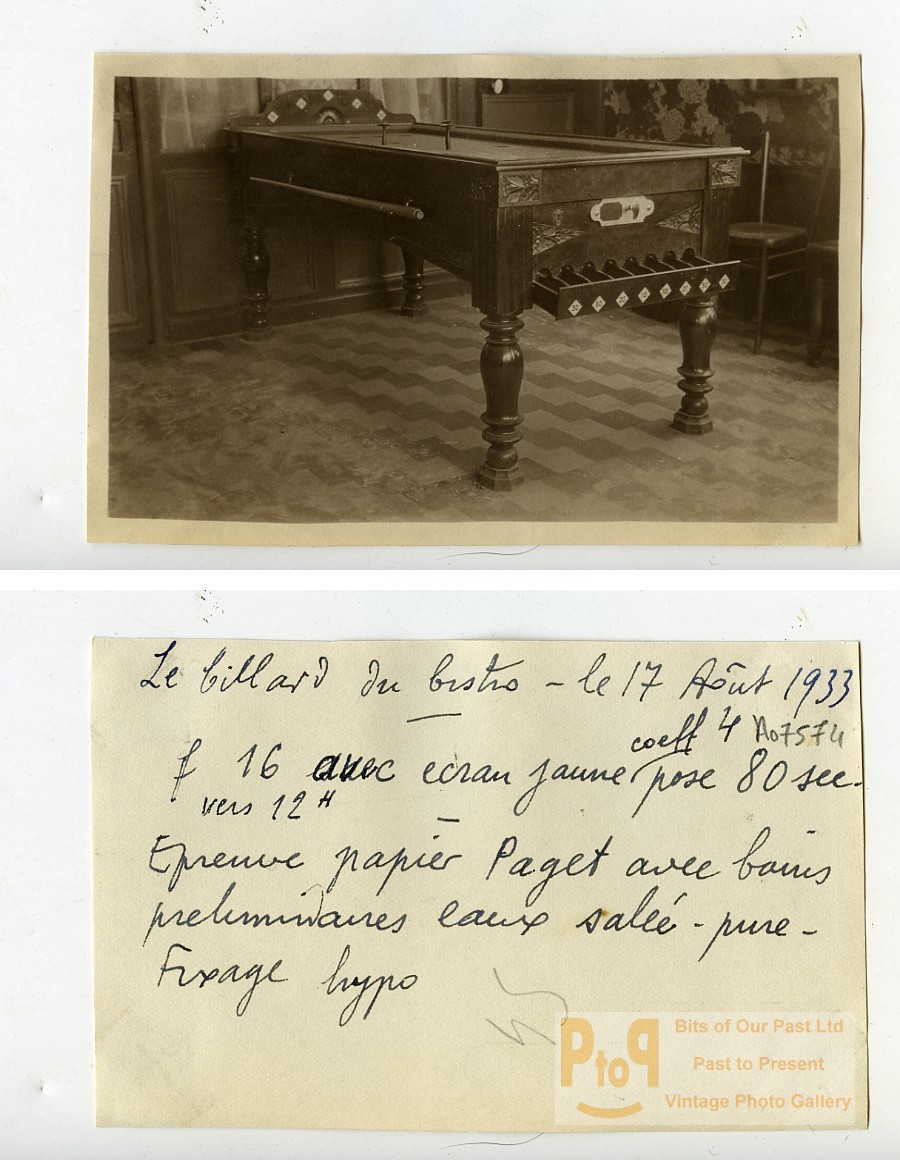 Le billard du bistro - le 17 Août 1933
coeff 4 A07574
f 16 avec ecran jaune pose 80 sec.
vers 12 H
Epreuve papier Paget avec bains
preliminaires eaux salée - pure -
Fixage hypo
PtoP
Bits of Our Past Ltd
Past to Present
Vintage Photo Gallery